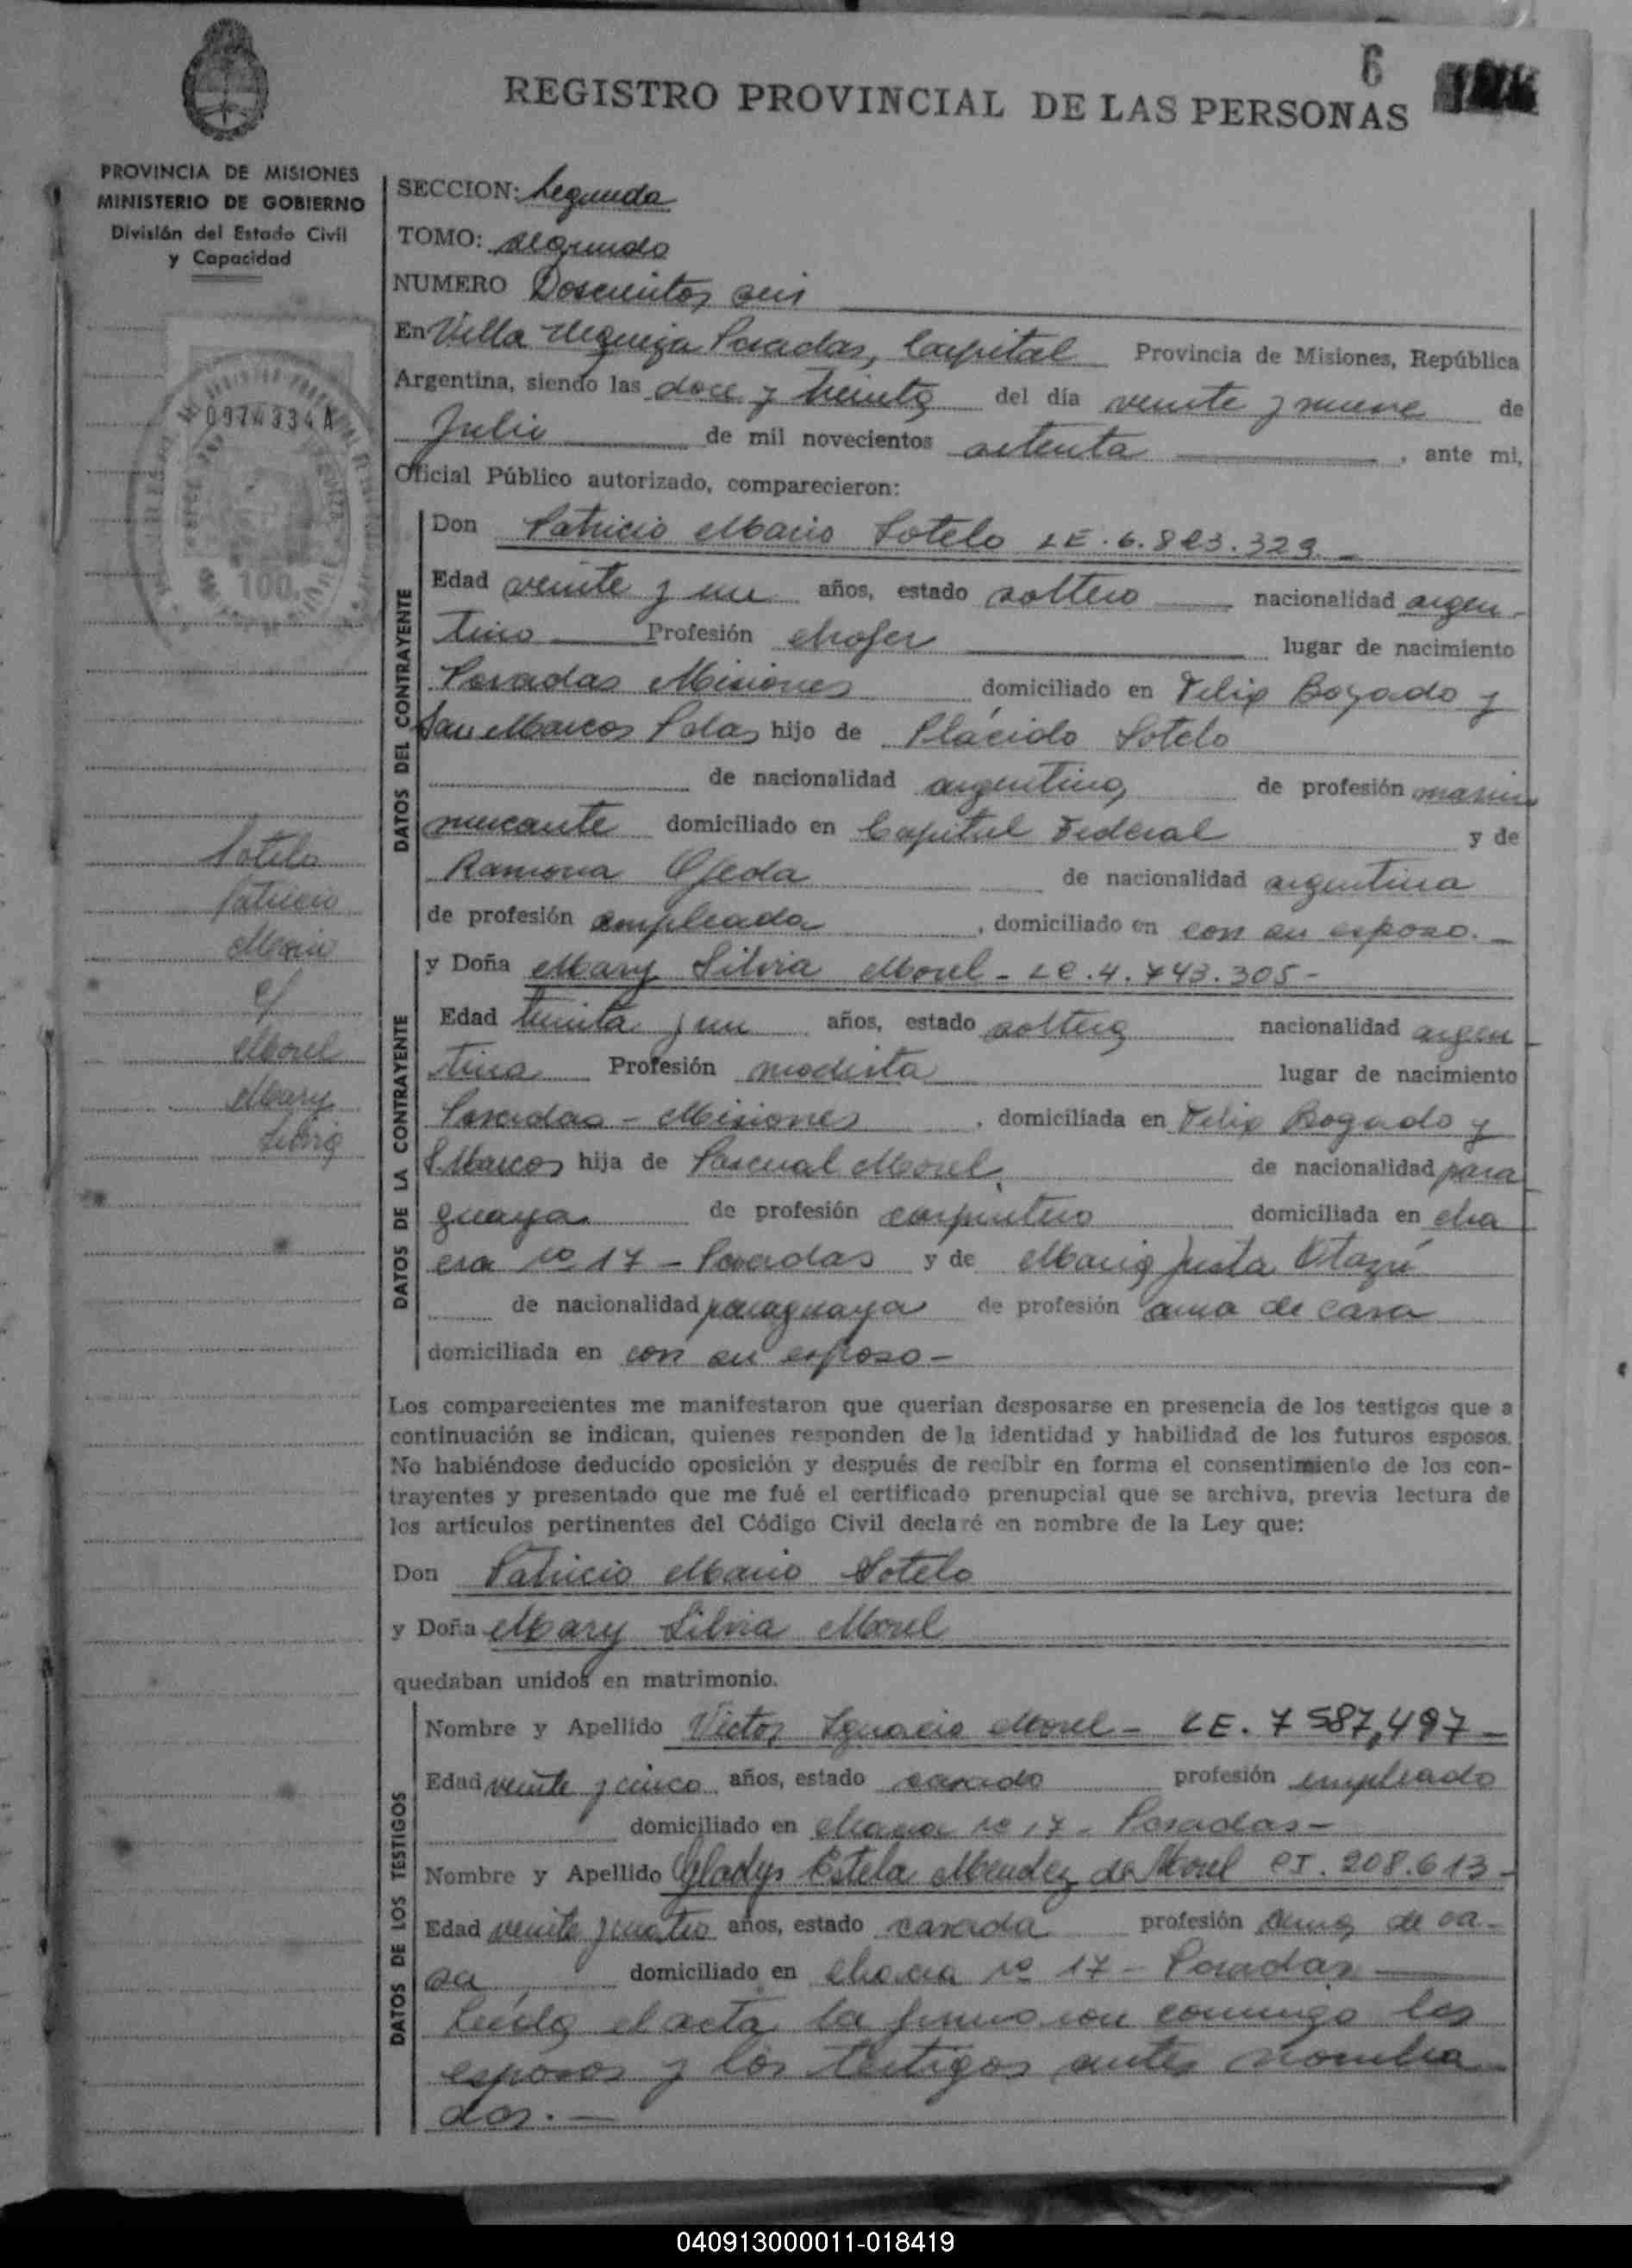 6
REGISTRO PROVINCIAL DE LAS PERSONAS
PROVINCIA DE MISIONES
MINISTERIO DE GOBIERNO
División del Estado Civil
y Capacidad
0974334 A
100.
Sotelo
Patricio
Mario
c/
Morel
Mary
Silvia
SECCION: Segunda
TOMO: segundo
NUMERO Doscientos seis
En Villa Urquiza Posadas, Capital Provincia de Misiones, República
Argentina, siendo las doce y treinta del día veinte y nueve de
Julio de mil novecientos setenta, ante mi,
Oficial Público autorizado, comparecieron:
DATOS DEL CONTRAYENTE
Don Patricio Mario Sotelo LE. 6.823.329 -
Edad veinte y un años, estado soltero nacionalidad argen-
tino Profesión chofer lugar de nacimiento
Posadas Misiones domiciliado en Felix Bogado y
San Marcos Pdas hijo de Plácido Sotelo
de nacionalidad argentino, de profesión marino
mercante domiciliado en Capital Federal y de
Ramona Ojeda de nacionalidad argentina
de profesión empleada, domiciliado en con su esposo. -
DATOS DE LA CONTRAYENTE
y Doña Mary Silvia Morel - LC. 4.743.305 -
Edad treinta y un años, estado soltera nacionalidad argen
tina Profesión modista lugar de nacimiento
Posadas - Misiones, domiciliada en Felix Bogado y
S. Marcos hija de Pascual Morel de nacionalidad para
guaya de profesión carpintero domiciliada en cha
cra nº 17 - Posadas y de Maria Justa Otazú
de nacionalidad paraguaya de profesión ama de casa
domiciliada en con su esposo -
Los comparecientes me manifestaron que querían desposarse en presencia de los testigos que a
continuación se indican, quienes responden de la identidad y habilidad de los futuros esposos.
No habiéndose deducido oposición y después de recibir en forma el consentimiento de los con-
trayentes y presentado que me fué el certificado prenupcial que se archiva, previa lectura de
los artículos pertinentes del Código Civil declaré en nombre de la Ley que:
Don Patricio Mario Sotelo
y Doña Mary Silvia Morel
quedaban unidos en matrimonio.
DATOS DE LOS TESTIGOS
Nombre y Apellido Victor Ignacio Morel - LE. 7 587,497 -
Edad veinte y cinco años, estado casado profesión empleado
domiciliado en chacra nº 17 - Posadas -
Nombre y Apellido Gladys Estela Mendez de Morel CI. 208.613 -
Edad veinte y cuatro años, estado casada profesión ama de ca-
sa domiciliado en chacra nº 17 - Posadas
Leída el acta la firmaron conmigo los
esposos y los testigos antes nombra
dos. -
040913000011-018419